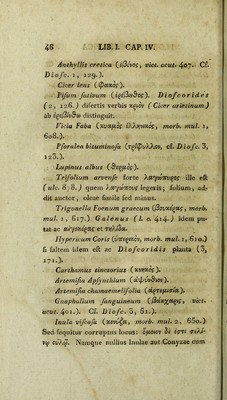 46 LIB. I. CAP. IV.
Anthyllis cretica (ἐβένος, vict. acut. 407. Cf.
Diosc. 1, 129.).
Cicer lens (φακὸς).
Pisum sativum (ἐρέβινθος). Dioscorides
(2, 126.) disertis verbis κριὸν (Cicer arietinum)
ab ἐρεβίνθῳ distinguit.
Vicia Faba (κυαμὸς ἑλληνικὸς, morb. mul. 1,
608.).
Psoralea bituminosa (τρίφυλλον, cf. Diosc. 3,
123.).
Lupinus albus (θερμὸς).
Trifolium arvense forte λαγώπυρος ille est
(ulc. 878.) quem λαγώπους legeris; folium, ad-
dit auctor, oleae simile sed minus.
Trigonella Foenum graecum (βουκέρας, morb.
mul. 1, 617.) Galenus (L c. 414.) idem pu-
tat ac αἰγοκέρας et τηλίδα.
Hypericum Coris (ὑπερικὸν, morb. mul. 1, 610.)
si saltem idem est ac Dioscoridis planta (3,
171.).
Carthamus tinctorius (κνῆκος).
Artemisia Apsynthium (ἀψίνθιον).
Artemisia chamaemelifolia (ἀρτεμισία).
Gnaphalium sanguineum (βάκχαρις, vict.
acut. 401.). Cf. Diosc. 3, 51.).
Inula viscosa (κονύζα, morb. mul. 2, 650.)
Sed sequitur corruptus locus: ὅμοιον δέ ἐστι
Namque nullius Inulae aut Conyzae cum